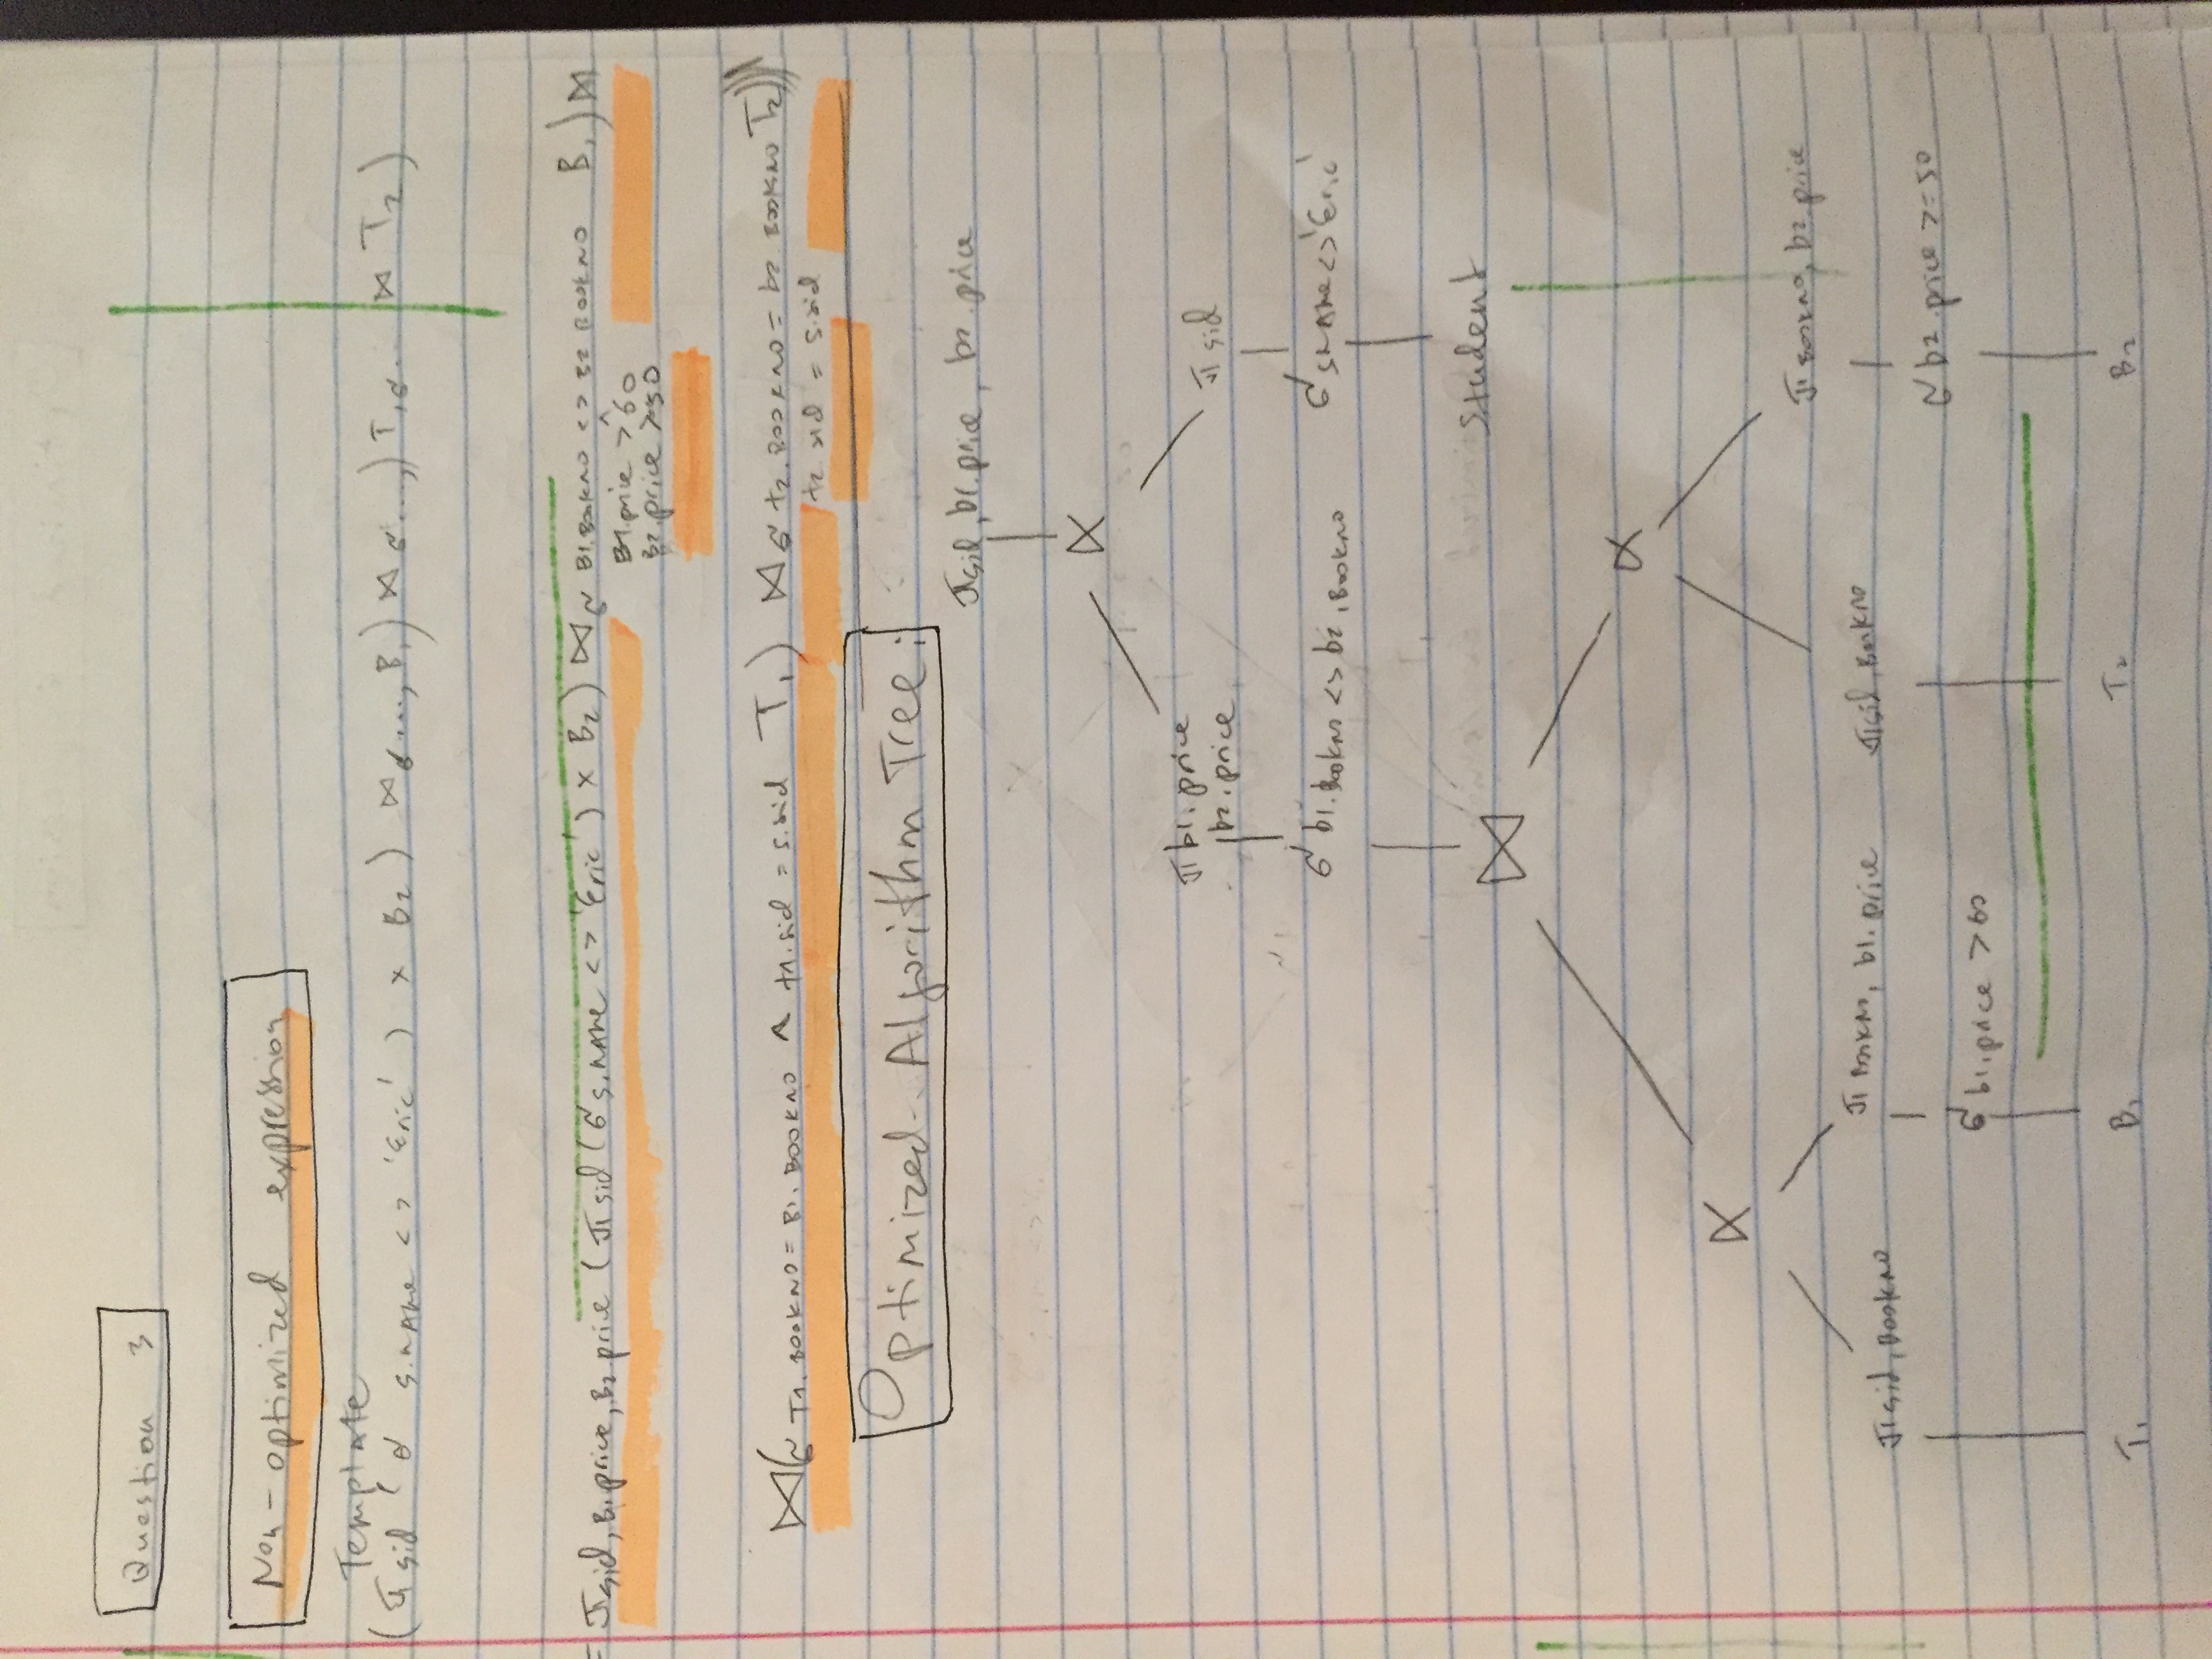 Question 3
Non-optimized expression
Template
(π sid (σ s.name <> 'Eric') × B2) ⋈ σ..., B1) ⋈ σ...,) T1 σ... ⋈ T2)
= π sid, B1.price, B2.price (π sid (σ s.name <> 'Eric') × B2) ⋈ σ B1.BOOKNO <> B2 BOOKNO B1) ⋈
B1.price > ^ 60
B2.price >=50
⋈(σ T1.BOOKNO = B1.BOOKNO ∧ t1.sid = s.sid T1) ⋈ σ t2.BOOKNO = b2 BOOKNO T2)))
t2 sid = s.sid
Optimized Algorithm Tree:
π sid, b1.price, b2.price
⋉
π b1.price
b2.price
π sid
σ b1.BookNo <> b2.BookNo
σ sname <> 'Eric'
Student
⋈
⋉
⋉
π BookNo, b2.price
π sid, BookNo
π BookNo, b1.price
π sid, BookNo
σ b2.price >= 50
σ b1.price > 60
T1
B1
T2
B2